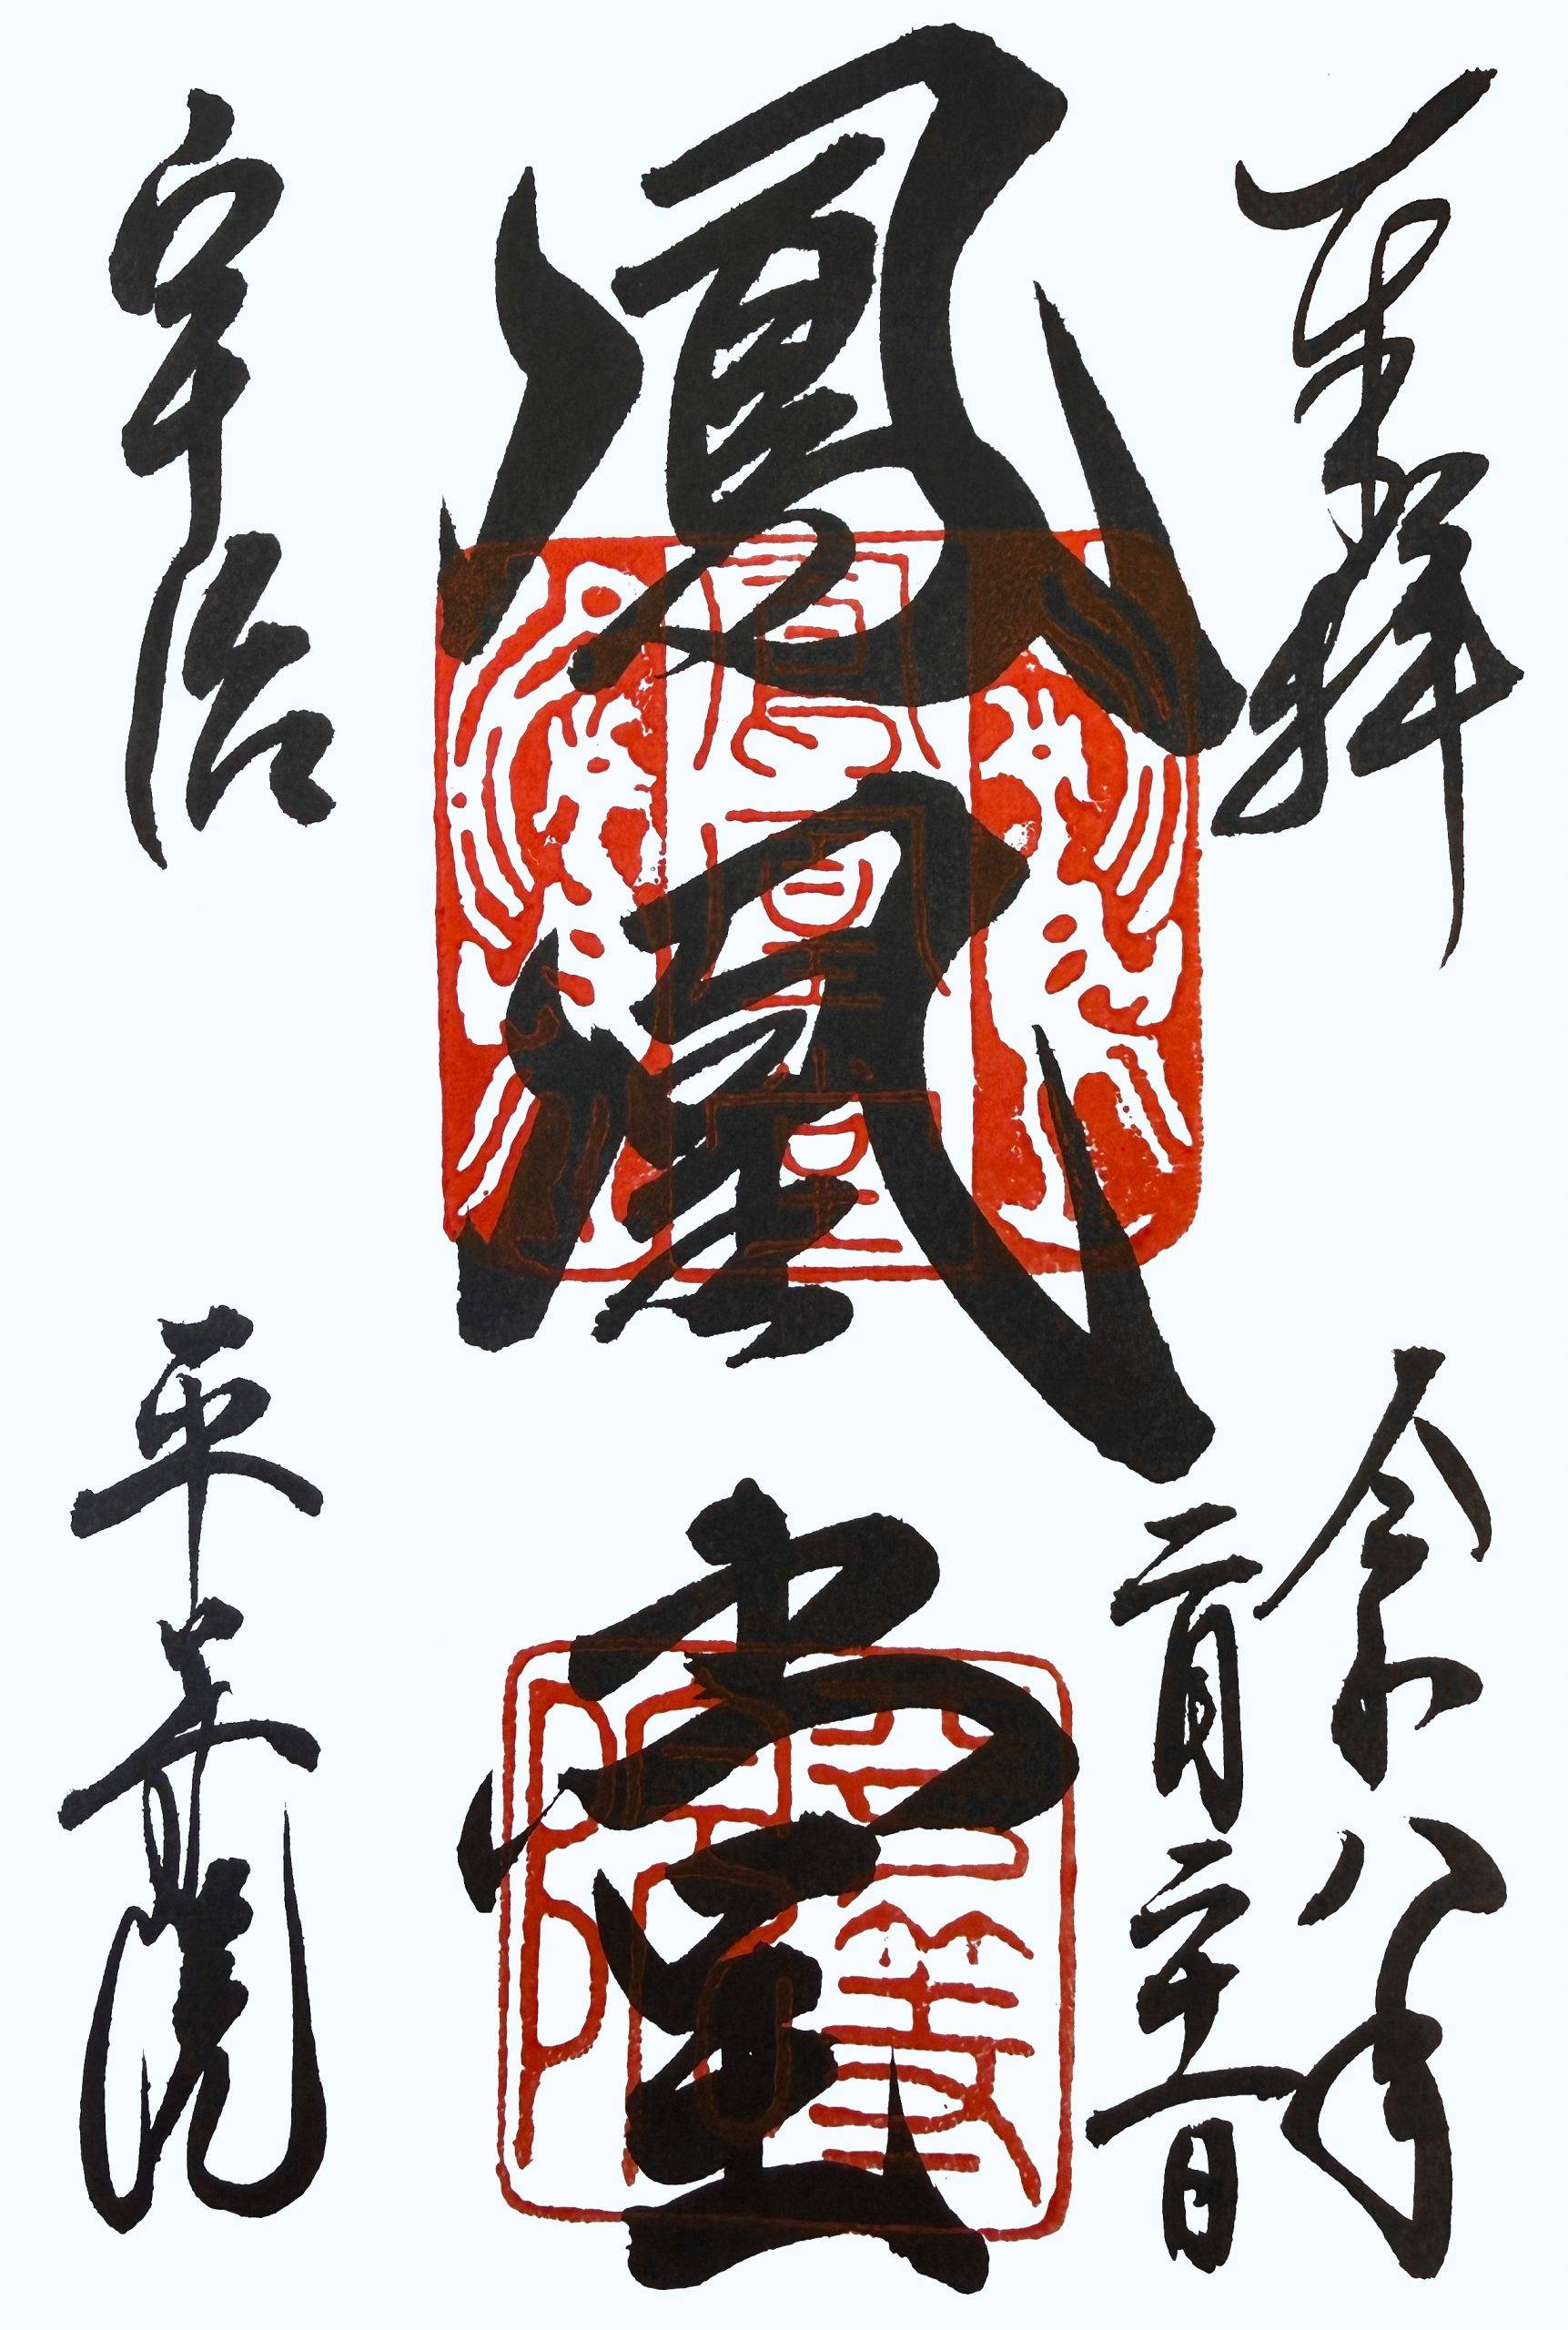 奉拝
令和八年
二月二十一日
鳳凰堂
宇治
平等院
鳳凰堂